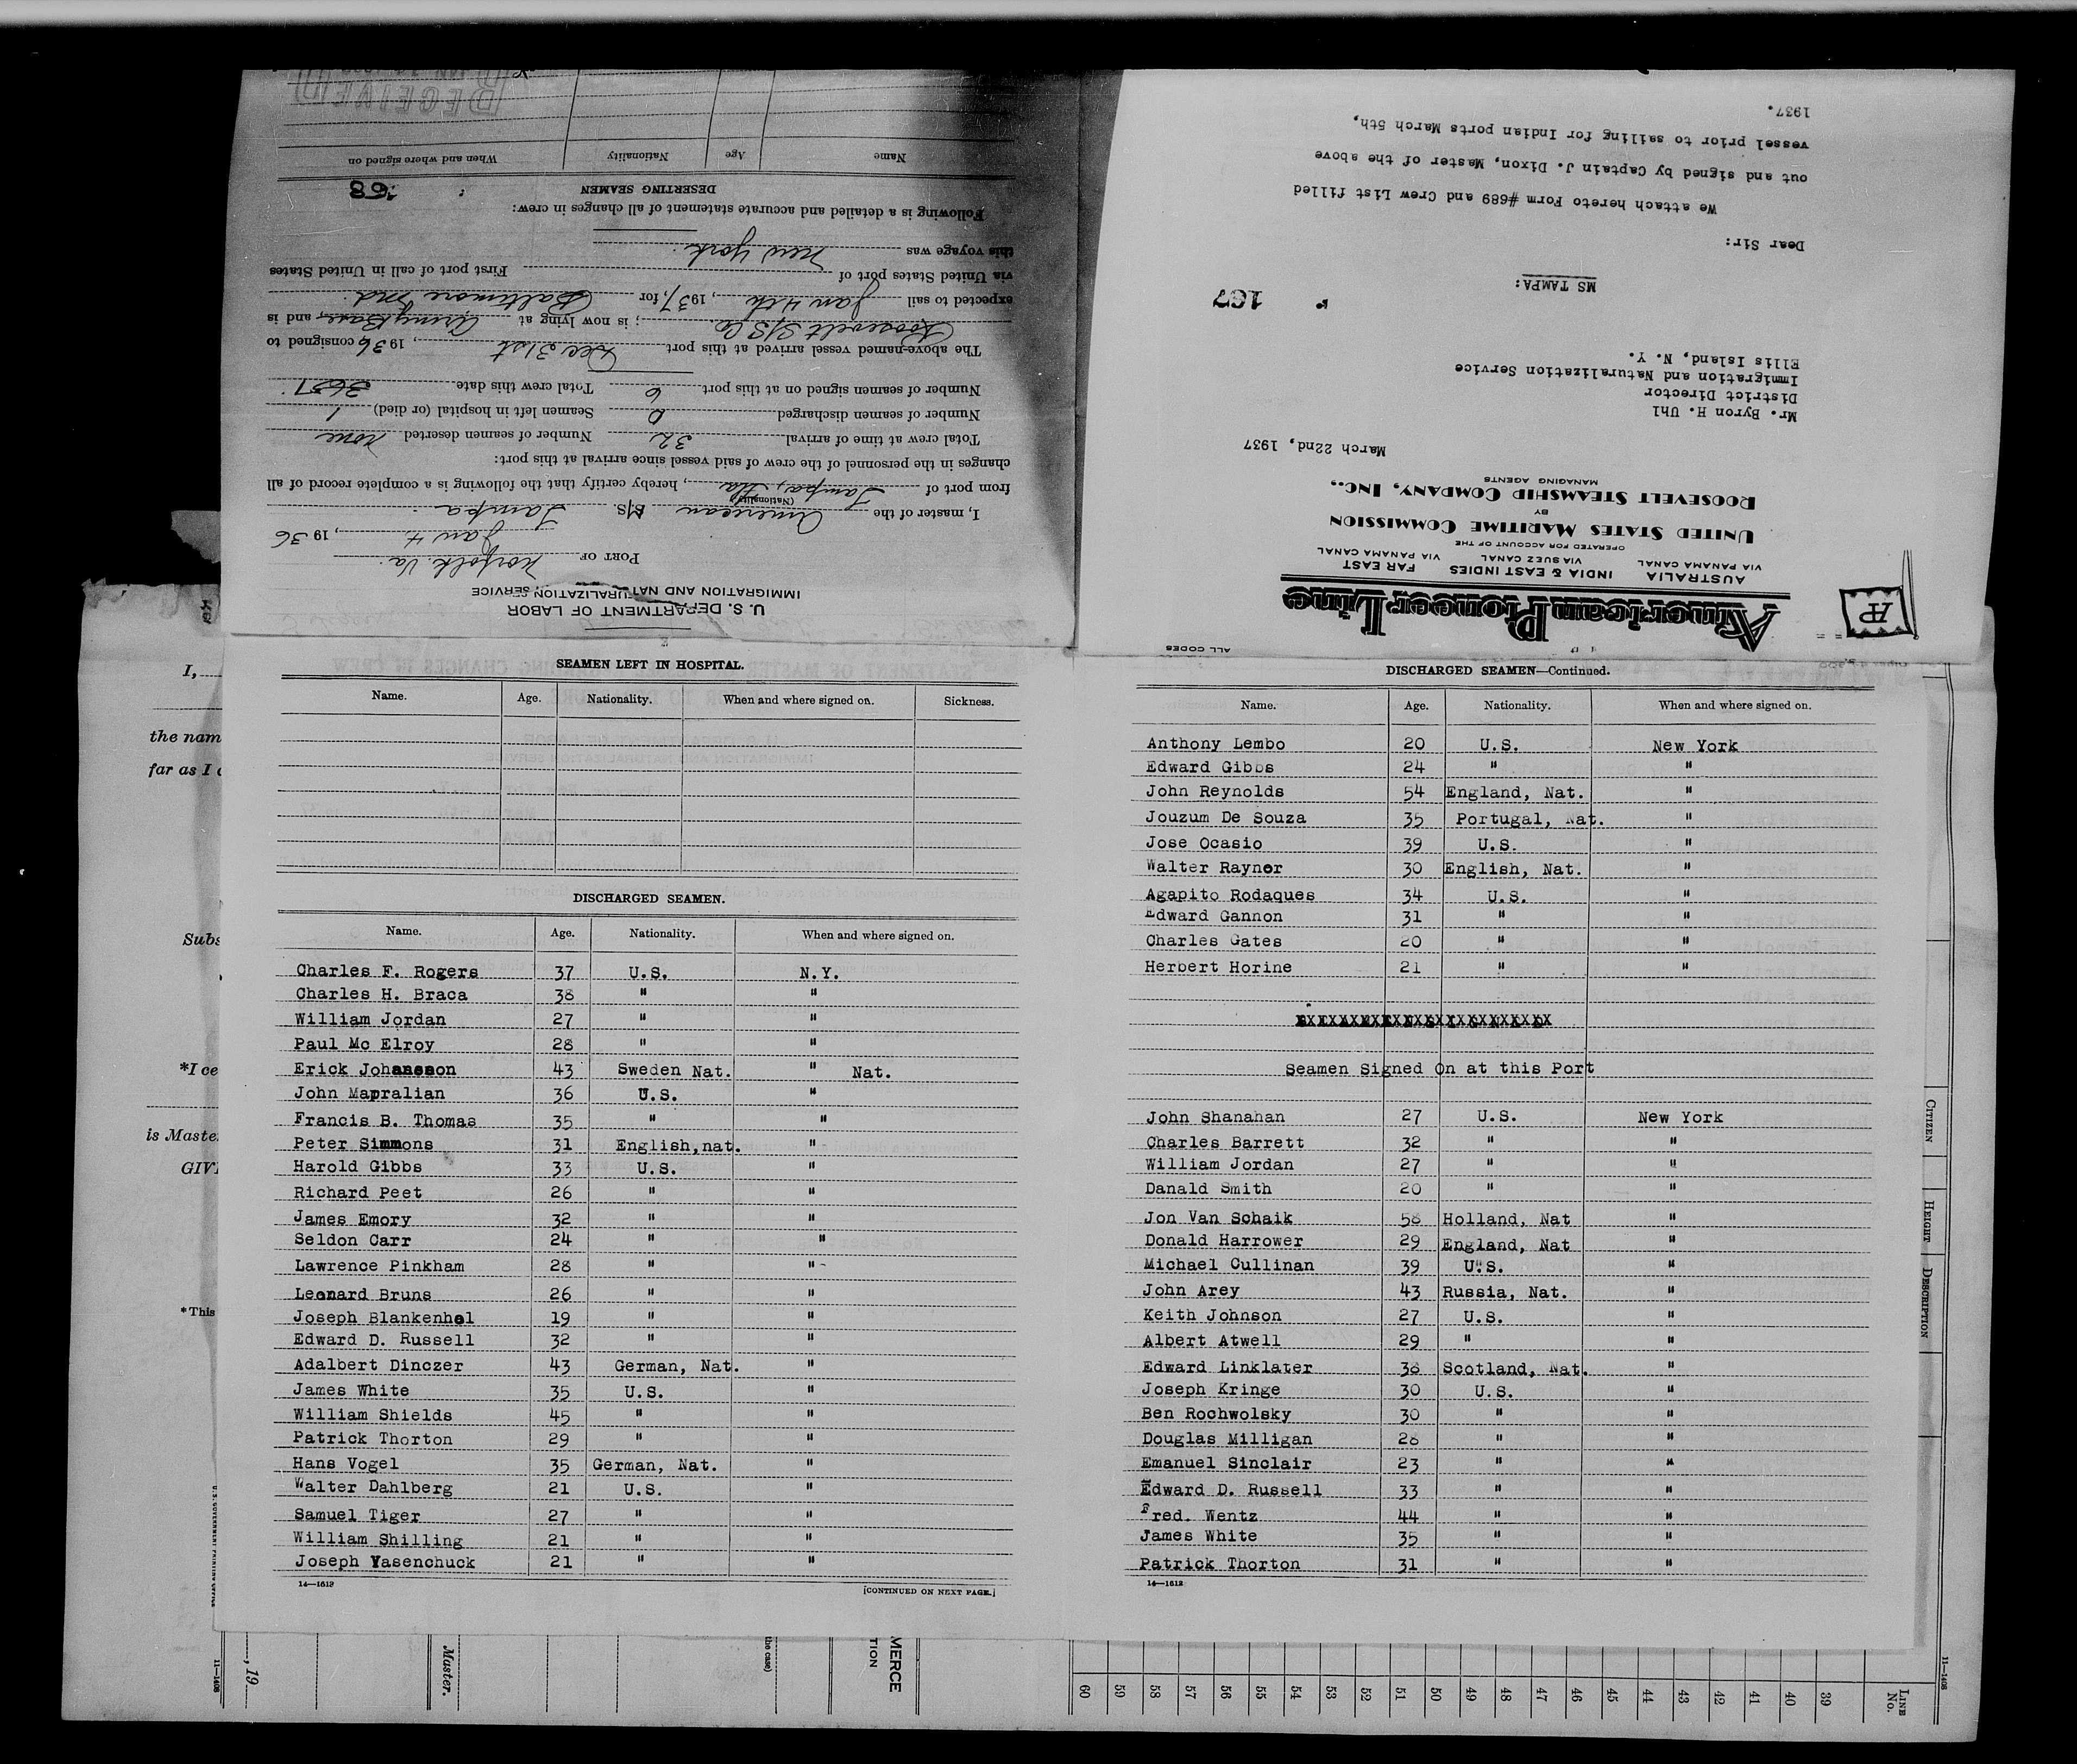 U. S. DEPARTMENT OF LABOR
IMMIGRATION AND NATURALIZATION SERVICE
PORT OF Norfolk Va.
Jan 4, 1936
I, master of the American S/S. Tampa
(Nationality)
from port of Tampa, Fla, hereby certify that the following is a complete record of all
changes in the personnel of the crew of said vessel since arrival at this port:
Total crew at time of arrival 32 Number of seamen deserted none
Number of seamen discharged 0 Seamen left in hospital (or died) 1
Number of seamen signed on at this port 6 Total crew this date 37
The above-named vessel arrived at this port Dec 31st, 1936 consigned to
Roosevelt S/S Co.; is now lying at Army Base, and is
expected to sail Jan 4th, 1937, for Baltimore Md.
via United States port of First port of call in United States
this voyage was New York.
Following is a detailed and accurate statement of all changes in crew:
168
DESERTING SEAMEN
Name Age Nationality When and where signed on
RECEIVED
ALL CODES
AP
American Pioneer Line
AUSTRALIA INDIA & EAST INDIES FAR EAST
VIA PANAMA CANAL VIA SUEZ CANAL VIA PANAMA CANAL
OPERATED FOR ACCOUNT OF THE
UNITED STATES MARITIME COMMISSION
BY
ROOSEVELT STEAMSHIP COMPANY, INC.,
MANAGING AGENTS
March 22nd, 1937
Mr. Byron H. Uhl
District Director
Immigration and Naturalization Service
Ellis Island, N. Y.
167
MS TAMPA:
Dear Sir:
We attach hereto Form #689 and Crew List filled
out and signed by Captain J. Dixon, Master of the above
vessel prior to sailing for Indian ports March 5th,
1937.
SEAMEN LEFT IN HOSPITAL.
Name. Age. Nationality. When and where signed on. Sickness.
DISCHARGED SEAMEN.
Name. Age. Nationality. When and where signed on.
Charles F. Rogers 37 U.S. N.Y.
Charles H. Braca 38 " "
William Jordan 27 " "
Paul Mc Elroy 28 " "
Erick Johansson 43 Sweden Nat. " Nat.
John Mapralian 36 U.S. "
Francis B. Thomas 35 " "
Peter Simmons 31 English,nat. "
Harold Gibbs 33 U.S. "
Richard Peet 26 " "
James Emory 32 " "
Seldon Carr 24 " "
Lawrence Pinkham 28 " "
Leonard Bruns 26 " "
Joseph Blankenhol 19 " "
Edward D. Russell 32 " "
Adalbert Dinczer 43 German, Nat. "
James White 35 U.S. "
William Shields 45 " "
Patrick Thorton 29 " "
Hans Vogel 35 German, Nat. "
Walter Dahlberg 21 U.S. "
Samuel Tiger 27 " "
William Shilling 21 " "
Joseph Yasenchuck 21 " "
14—1612
[CONTINUED ON NEXT PAGE.]
DISCHARGED SEAMEN—Continued.
Name. Age. Nationality. When and where signed on.
Anthony Lembo 20 U.S. New York
Edward Gibbs 24 " "
John Reynolds 54 England, Nat. "
Jouzum De Souza 35 Portugal, Nat. "
Jose Ocasio 39 U.S. "
Walter Raynor 30 English, Nat. "
Agapito Rodaques 34 U.S. "
Edward Gannon 31 " "
Charles Gates 20 " "
Herbert Horine 21 " "
Seamen Signed On at this Port
John Shanahan 27 U.S. New York
Charles Barrett 32 " "
William Jordan 27 " "
Danald Smith 20 " "
Jon Van Schaik 58 Holland, Nat "
Donald Harrower 29 England, Nat "
Michael Cullinan 39 U.S. "
John Arey 43 Russia, Nat. "
Keith Johnson 27 U.S. "
Albert Atwell 29 " "
Edward Linklater 38 Scotland, Nat. "
Joseph Kringe 30 U.S. "
Ben Rochwolsky 30 " "
Douglas Milligan 28 " "
Emanuel Sinclair 23 " "
Edward D. Russell 33 " "
Fred. Wentz 44 " "
James White 35 " "
Patrick Thorton 31 " "
14—1612
I,
the nam
far as I
Subs
*I ce
is Maste
GIV
*This
11—1408
, 19
Master.
the case)
MERCE
TION
CITIZEN
HEIGHT
DESCRIPTION
60 59 58 57 56 55 54 53 52 51 50 49 48 47 46 45 44 43 42 41 40 39 LINE No.
11—1408